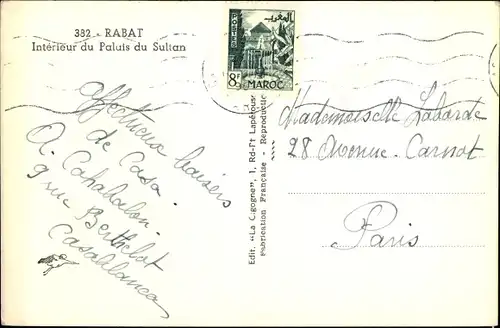 382 - RABAT
Intérieur du Palais du Sultan
POSTES
المغرب
8F
MAROC
Affectueux baisers
de Casa.
A. Cahabalon
9 rue Berthelot
Casablanca
Edit. "La Cigogne", 1, Rd-Pt Lapébous
Fabrication Française - Reproduction
Mademoiselle Laborde
28 Avenue. Carnot
Paris